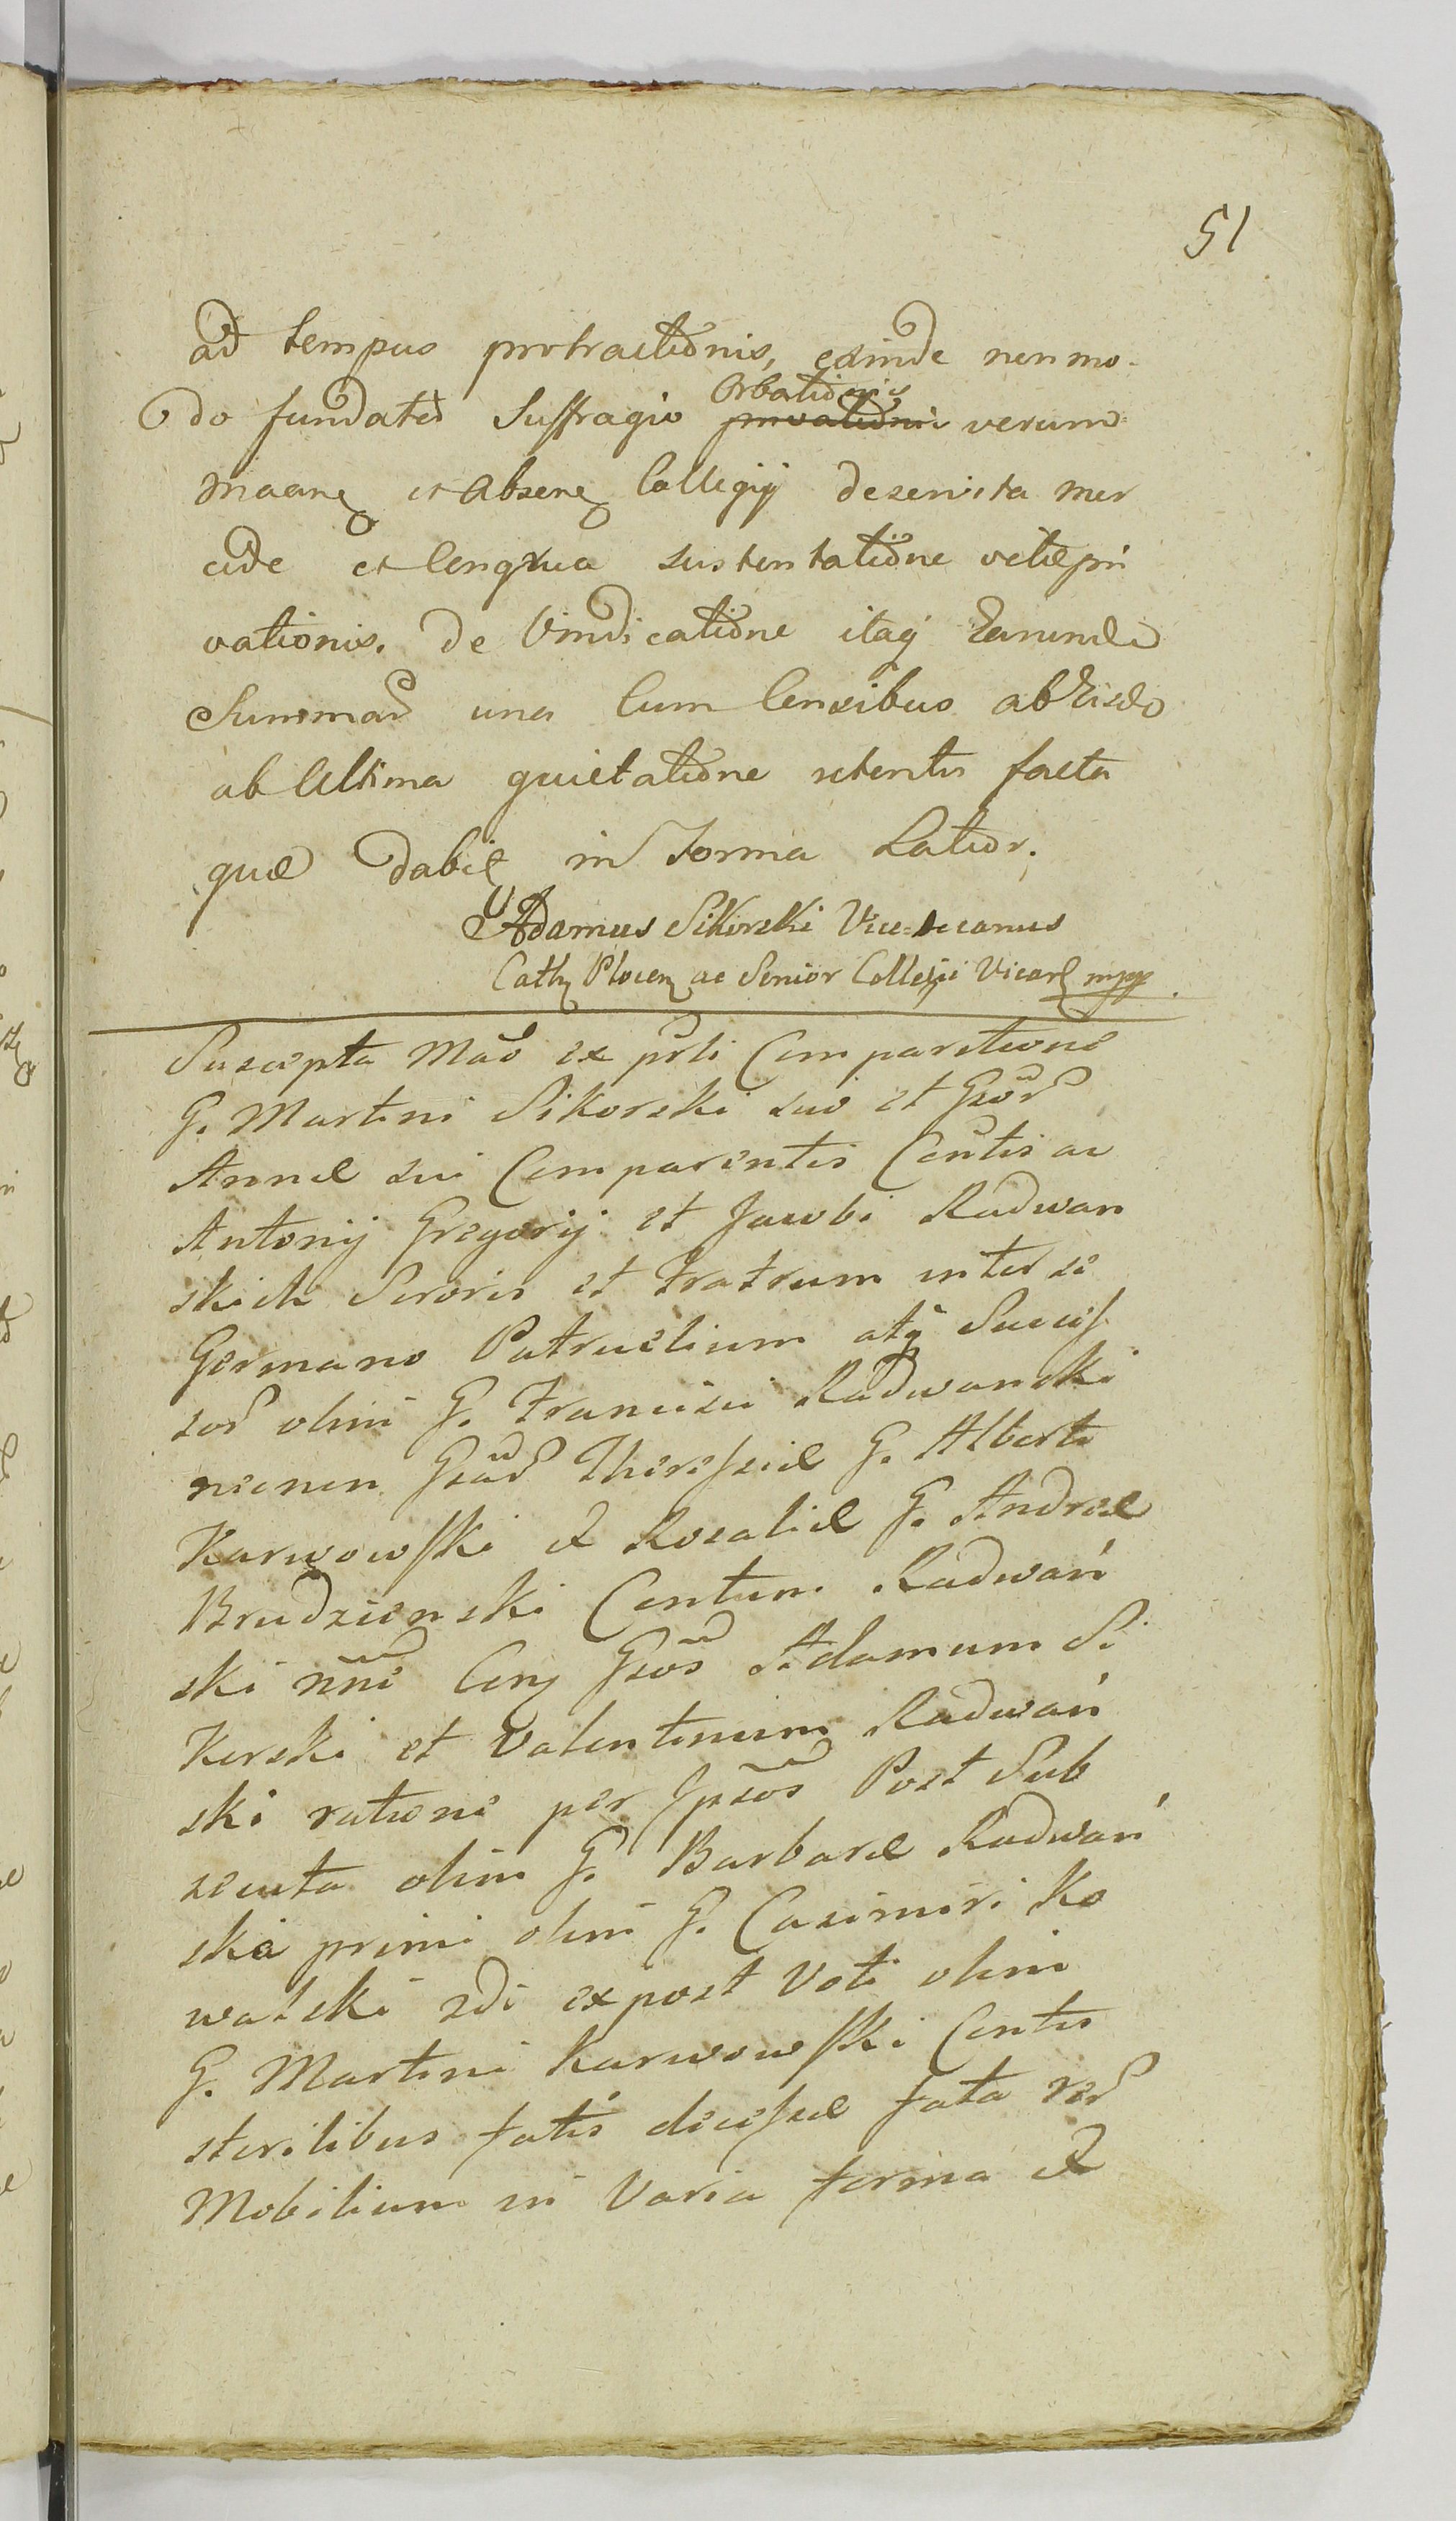 51
ad tempus protractionis, exinde nonmo-
do fundator Suffragio Orbationis verum
et Absen Collegij deservita mer
cede et Congrua sustentatione vitæ pri
vationis. De Vindicatione itaq Earunde
Summar una Cum Censibus ab
ab Ultima quietatione retentis facta
quæ dabit in Forma Latior.
Adamus Sikorski Vice=Decanus
Cath Plocen ac Senior Collegii Vicar mpp.
Suscepta ex Comparitione
G. Martini Sikorski suo et Gsor
Annæ sui Comparentis Contis ac
Antonij Gregorij et Jacobi Radwan
skich Sororis et Fratrum inter se
Germano Patruelium atq Succes
sor olim G. Francisci Radwanski
necnon Gsar Theressiæ G. Alberti
Karwowski et Rosaliæ G. Andreæ
Brudzienski Contum Radwań
ski nñe Con Gsos Adamum Si
korski et Valentinum Radwań
ski ratione per Ipsos Post Sub
secuta olim G. Barbaræ Radwań
ska primi olim G. Casimiri Ko
walski 2di ex post Voti olim
G. Martini Karwowski Contis
sterilibus fatis decessæ fata rer
Mobilium in Varia forma et